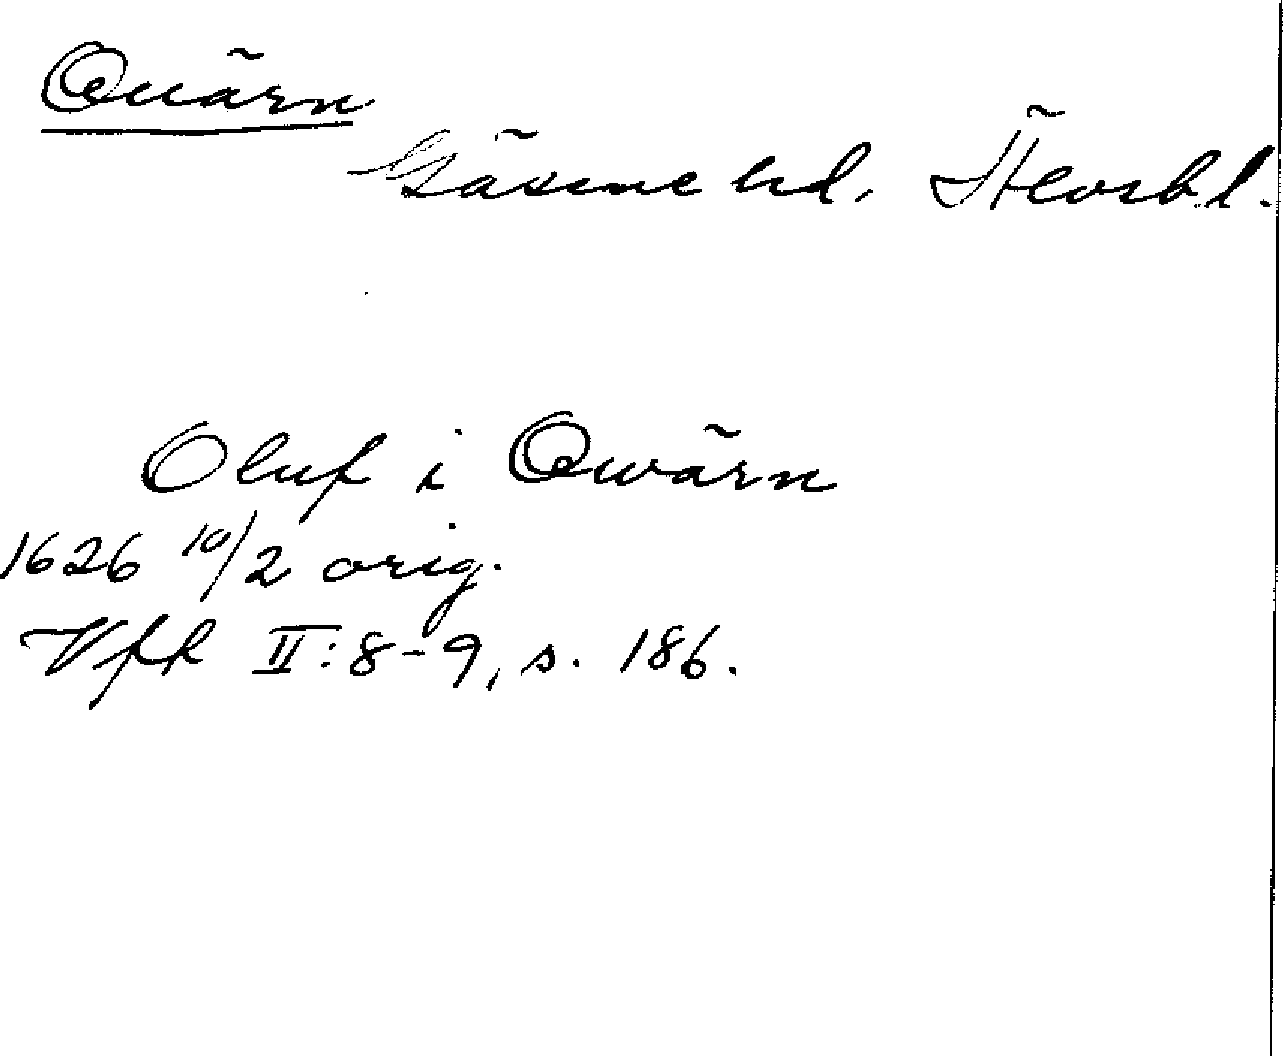 Quärn
Gäsene hd. Älvsbl.
Oluf i Qwärn
1626 10/2 orig.
Vfk II:8-9, s. 186.